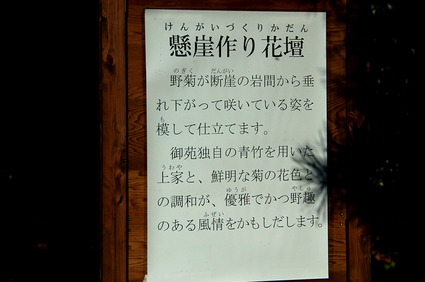 けんがいづくりかだん
懸崖作り花壇
のぎく だんがい
野菊が断崖の岩間から垂
れ下がって咲いている姿を
も
模して仕立てます。
御苑独自の青竹を用いた
うわや
上家と、鮮明な菊の花色と
ゆうが やしゅ
の調和が、優雅でかつ野趣
ふぜい
のある風情をかもしだします。